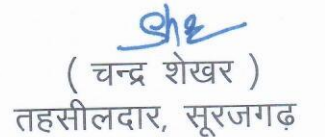 ( चन्द्र शेखर )
तहसीलदार, सूरजगढ़